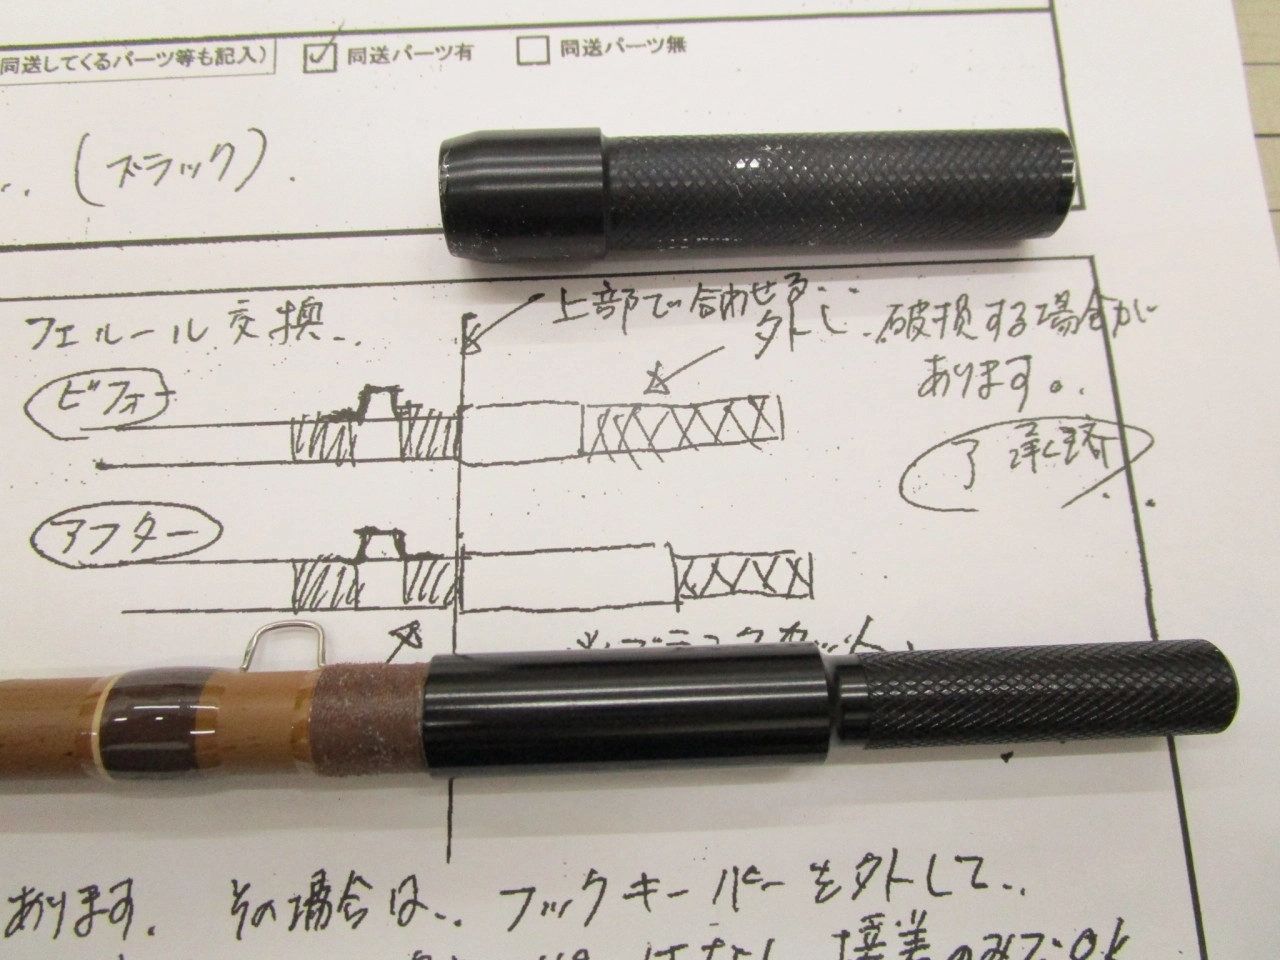 同送してくるパーツ等も記入) 同送パーツ有 同送パーツ無
(ブラック).
フェルール交換..
上部で合わせる..
外し.. 破損する場合が
あります。.
ビフォー
了承済
アフター
あります. その場合は.. フックキーパーを外して..